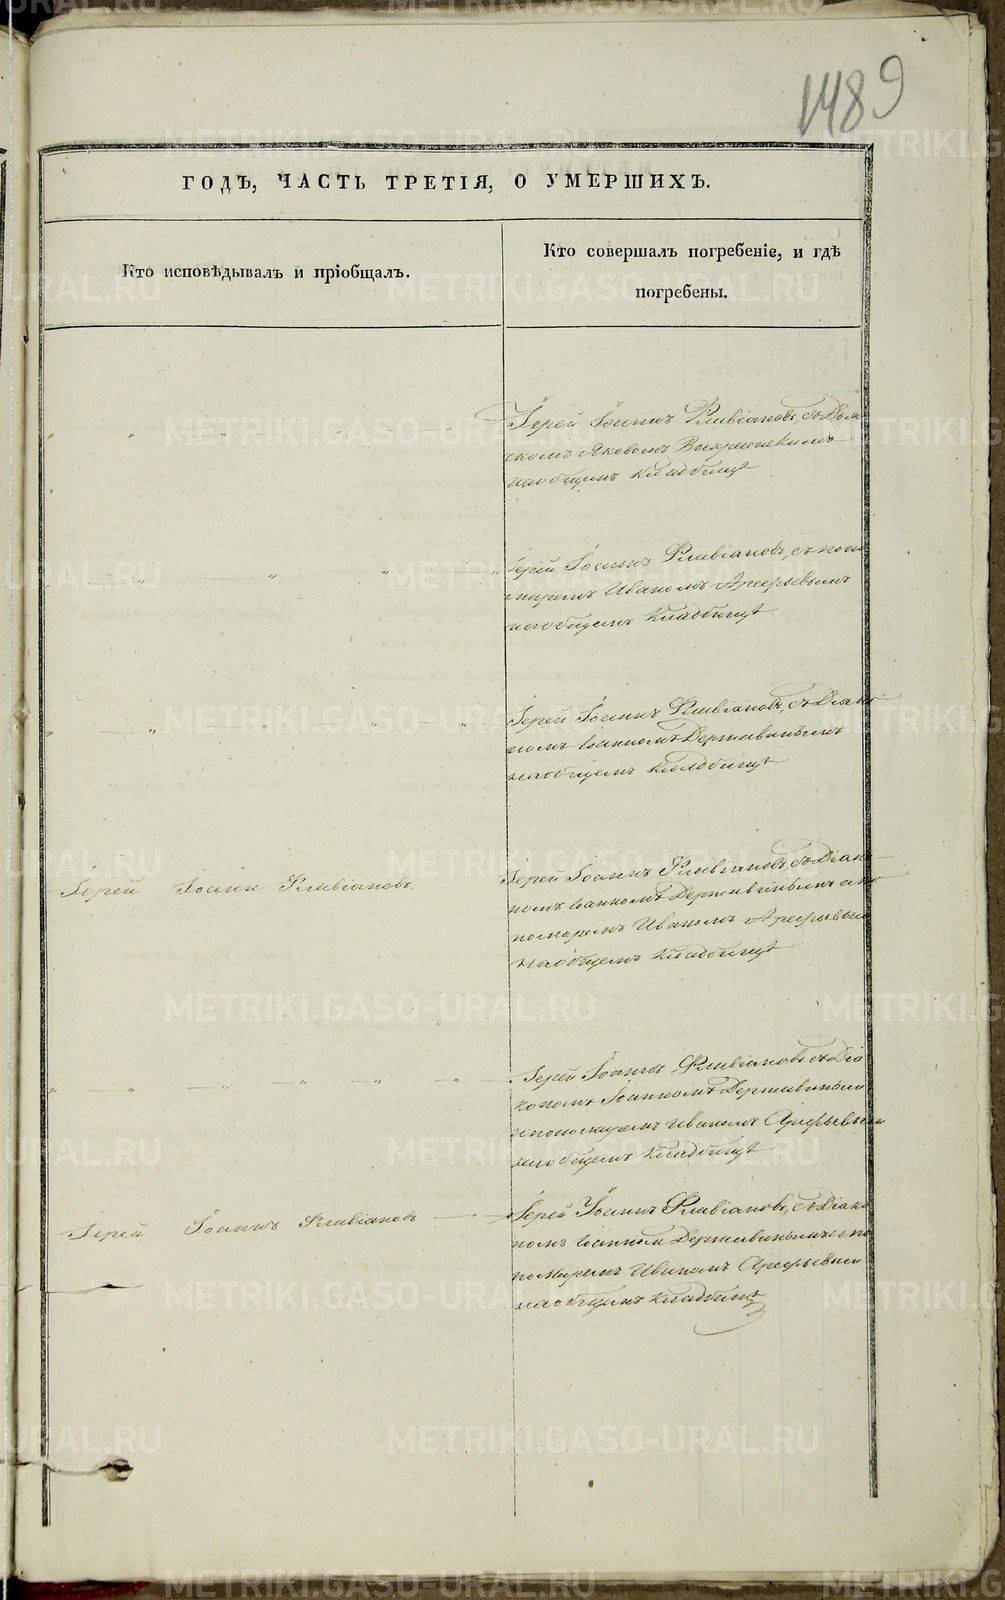 1489
ГОДЪ, ЧАСТЬ ТРЕТІЯ, О УМЕРШИХЪ.
Кто исповѣдывалъ и пріобщалъ.
Кто совершалъ погребеніе, и гдѣ
погребены.
Іерей Іоаннъ Флавіановъ, съ Дья
чкомъ Яковомъ Воскресенскимъ
на общемъ кладбищѣ
Іерей Іоаннъ Флавіановъ, съ поно
маремъ Иваномъ Арефьевымъ
на общемъ кладбищѣ
Іерей Іоаннъ Флавіановъ, съ Діако
номъ Іоанномъ Державинымъ
на общемъ кладбищѣ
Іерей Іоаннъ Флавіановъ.
Іерей Іоаннъ Флавіановъ, съ Діако
номъ Іоанномъ Державинымъ и по
номаремъ Иваномъ Арефьевым
на общемъ кладбищѣ
Іерей Іоаннъ Флавіановъ, съ Діа
кономъ Іоанномъ Державиным
и пономаремъ Иваномъ Арефьевым
на общемъ кладбищѣ
Іерей Іоаннъ Флавіановъ
Іерей Іоаннъ Флавіановъ, съ Діако
номъ Іоанном Державинымъ и по
номаремъ Иваномъ Арефьевым
на общемъ кладбищѣ
METRIKI.GASO-URAL.RU